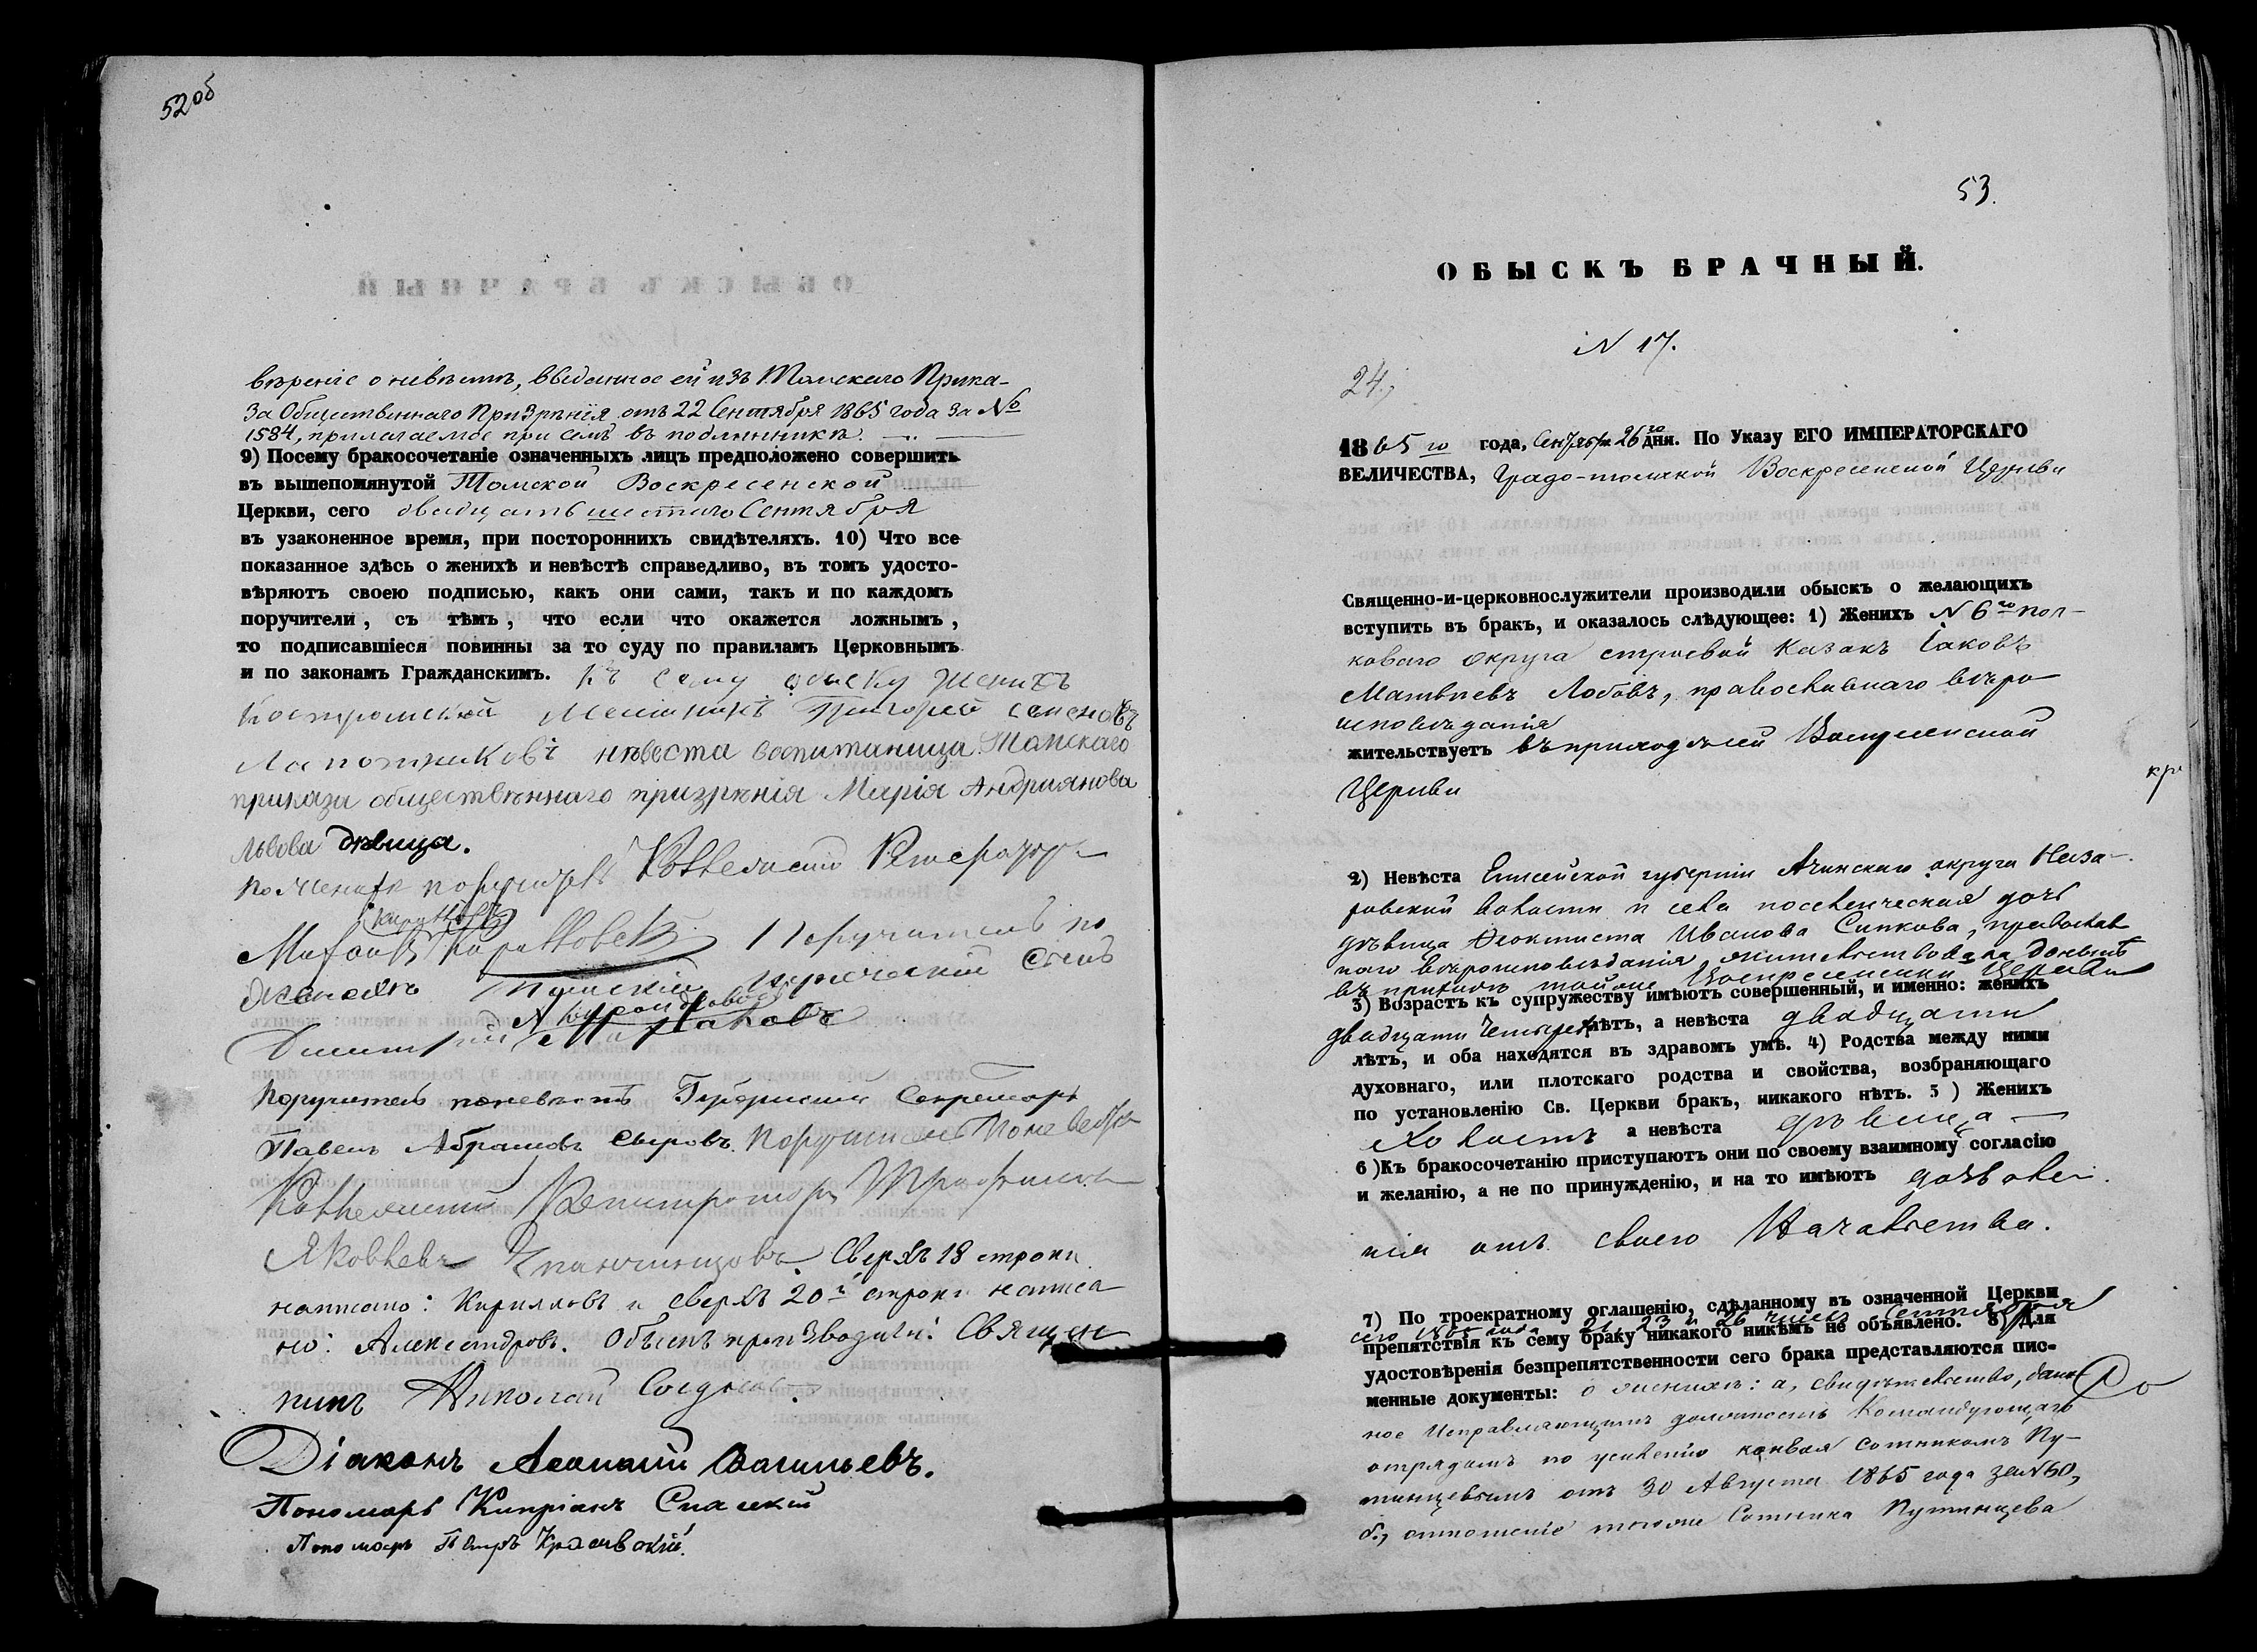 52об
вѣреніе о невѣстѣ, выданное ей изъ Томскаго Прика-
за Общественнаго Призрѣнія отъ 22 Сентября 1865 года за №
1584, прилагаемое при семъ въ подлинникѣ.
9) Посему бракосочетаніе означенныхъ лицъ предположено совершить
въ вышепомянутой Томской Воскресенской
Церкви, сего двадцать шестаго Сентября
въ узаконенное время, при постороннихъ свидѣтеляхъ. 10) Что все
показанное здѣсь о женихѣ и невѣстѣ справедливо, въ томъ удосто-
вѣряютъ своею подписью, какъ они сами, такъ и по каждомъ
поручители, съ тѣмъ, что если что окажется ложнымъ,
то подписавшіеся повинны за то суду по правиламъ Церковнымъ
и по законамъ Гражданскимъ. Къ сему обыску женихъ
Костромской Мещанинъ Григорей Семеновъ
Лапотниковъ невѣста воспитаница Томскаго
приказа общественнаго призрѣнія Марія Андриянова
Львова дѣвица.
по женихѣ поручилъ Коллежскій
Кириловъ
Поручитель по
женихѣ Томскій купеческій сынъ
Александровъ
Дмитрій
Поручитель по невѣстѣ Губернскій Секретарь
Павелъ Абрамовъ Сыровъ. Поручитель по невѣстѣ
Коллежскій Регистраторъ
Яковлевъ Сверхъ 18 строки
написано: Кириловъ и сверхъ 20й строки написа
но: Александровъ. Обыскъ производили: Священ
никъ Николай
Діаконъ Васильевъ.
Пономарь Кипріанъ Спаскій
Пономарь Петръ
53.
ОБЫСКЪ БРАЧНЫЙ.
N 17.
24.
1865го года, Сентября 26го дня. По Указу ЕГО ИМПЕРАТОРСКАГО
ВЕЛИЧЕСТВА, Градо-томской Воскресенской Церкви
Священно-и-церковнослужители производили обыскъ о желающихъ
вступить въ бракъ, и оказалось слѣдующее: 1) Женихъ N 6го пол-
коваго округа строевой Казакъ Іаковъ
Матвѣевъ Лобовъ, православнаго вѣро
исповѣданія
жительствуетъ въ приходѣ сей Воскресенской
Церкви
кр
2) Невѣста Енисейской губерніи Ачинскаго округа Наза-
ровской волости и села поселенческая дочь
дѣвица Феоктиста Иванова Сипкова, православ
наго вѣроисповѣданія жительствовала донынѣ
въ приходѣ тойже Воскресенской Церкви
3) Возрастъ къ супружеству имѣютъ совершенный, и именно: женихъ
двадцати четырехъ лѣтъ, а невѣста двадцати
лѣтъ, и оба находятся въ здравомъ умѣ. 4) Родства между ними
духовнаго, или плотскаго родства и свойства, возбраняющаго
по установленію Св. Церкви бракъ, никакого нѣтъ. 5) Женихъ
холостъ а невѣста дѣвица
6) Къ бракосочетанію приступаютъ они по своему взаимному согласію
и желанію, а не по принужденію, и на то имѣютъ дозволе-
нія отъ своего Начальства.
7) По троекратному оглашенію, сдѣланному въ означенной Церкви
сего 1865 года 21, 23 и 26 чиселъ Сентября
препятствія къ сему браку никакого никѣмъ не объявлено. 8) Для
удостовѣренія безпрепятственности сего брака представляются пис-
менные документы: о женихѣ: а, свидѣтельство, дан-
ное Исправляющимъ должность Командующаго
отрядомъ по усиленію конвоя Сотникомъ Пу-
тинцевымъ отъ 30 Августа 1865 года за N 60,
б, отношеніе тогоже Сотника Путинцева